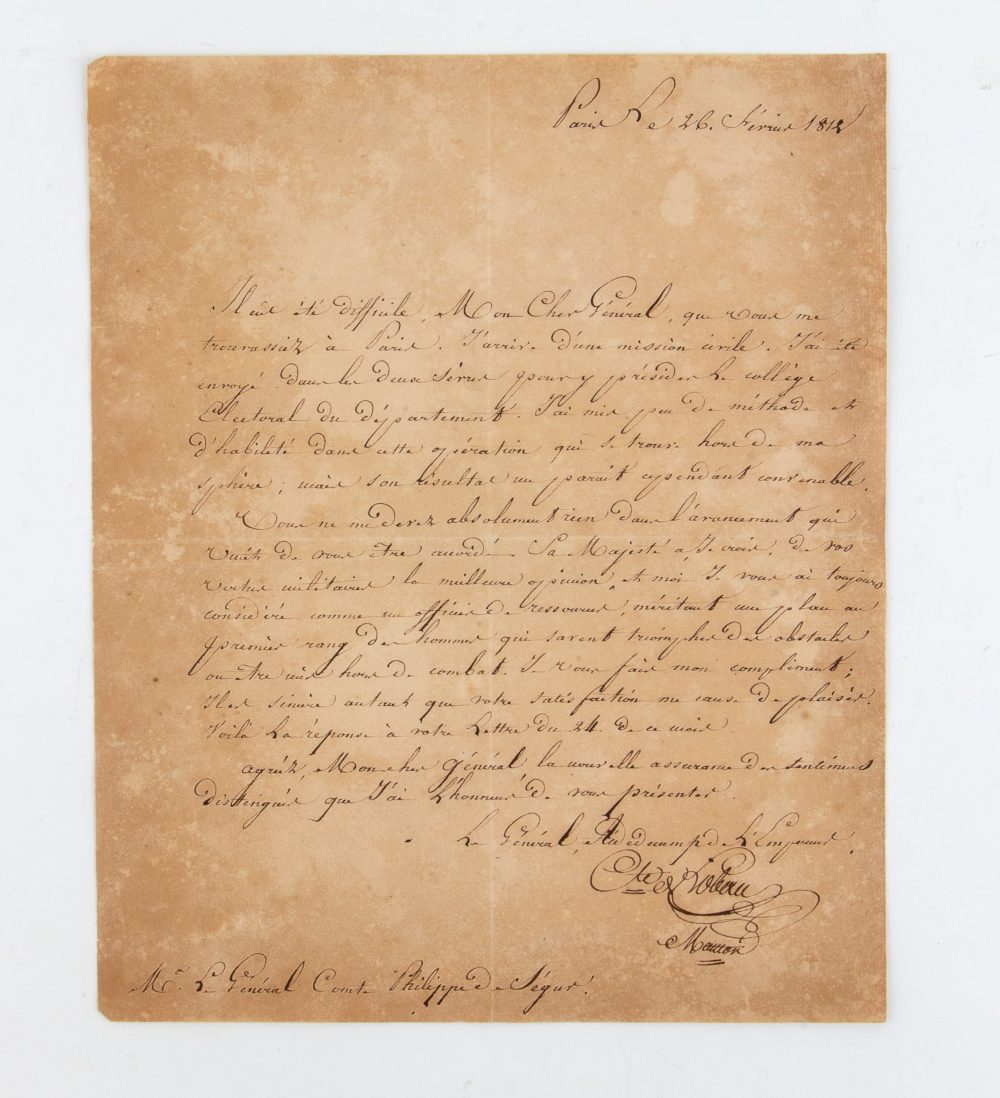 Paris Le 26. Février 1812
Il eut été difficile, Mon Cher Général, que vous me
trouvassiez à Paris. J'arrive d'une mission civile. J'ai été
envoyé dans les deux sévres pour y présider le collège
Électoral du département. J'ai mis peu de méthode et
d'habilité dans cette opération qui se trouve hors de ma
sphère; mais son résultat me parait cependant convenable.
Vous ne me devez absolument rien dans l'avancement qui
vient de vous être accordé. Sa Majesté a, Je crois, de vos
vertus militaires la meilleure opinion, et moi Je vous ai toujours
considéré comme un officier de ressources, méritant une place au
premier rang des hommes qui savent triompher des obstacles
ou être mis hors de combat. Je vous fais mon compliment;
Il est sincère autant que votre satisfaction me cause de plaisir.
Voilà La réponse à votre Lettre du 24. de ce mois.
agréez, Mon cher général la nouvelle assurance des sentimens
distingués que J'ai L'honneur de vous présenter.
Le Général, Aide de camp de L'Empereur,
Cte de Lobau
Mouton
Mr. Le Général Comte Philippe de Ségur.